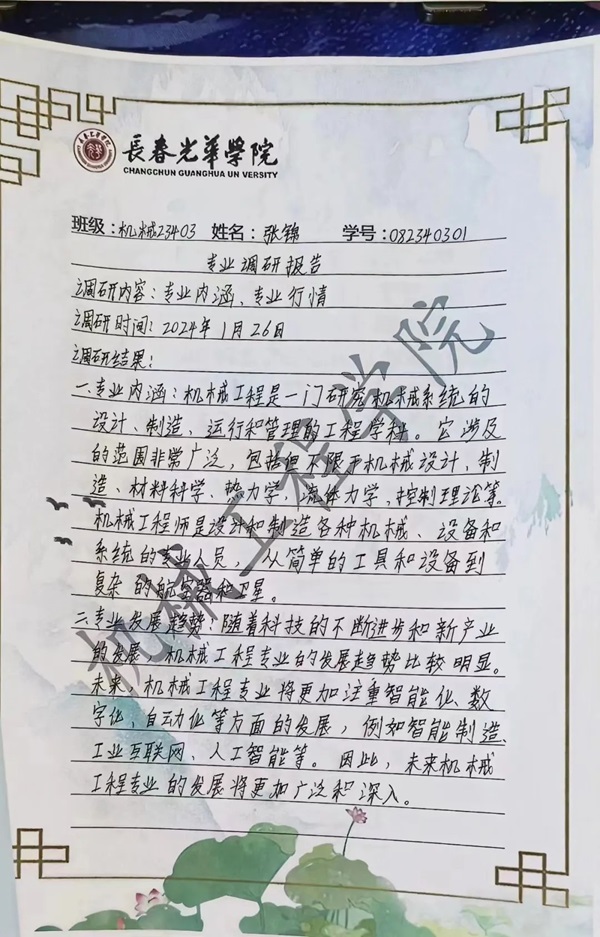 長春光华學院
CHANGCHUN GUANGHUA UN VERSITY
班级：机械23403 姓名：张锦 学号：082340301
专业调研报告
调研内容：专业内涵、专业行情
调研时间：2024年1月26日
调研结果：
一.专业内涵：机械工程是一门研究机械系统的
设计、制造、运行和管理的工程学科。它涉及
的范围非常广泛，包括但不限于机械设计、制
造、材料科学、热力学、流体力学、控制理论等。
机械工程师是设计和制造各种机械、设备和
系统的专业人员，从简单的工具和设备到
复杂的航空器和卫星。
二.专业发展趋势：随着科技的不断进步和新产业
的发展，机械工程专业的发展趋势比较明显。
未来，机械工程专业将更加注重智能化、数
字化、自动化等方面的发展，例如智能制造、
工业互联网、人工智能等。因此，未来机械
工程专业的发展将更加广泛和深入。
机械工程学院